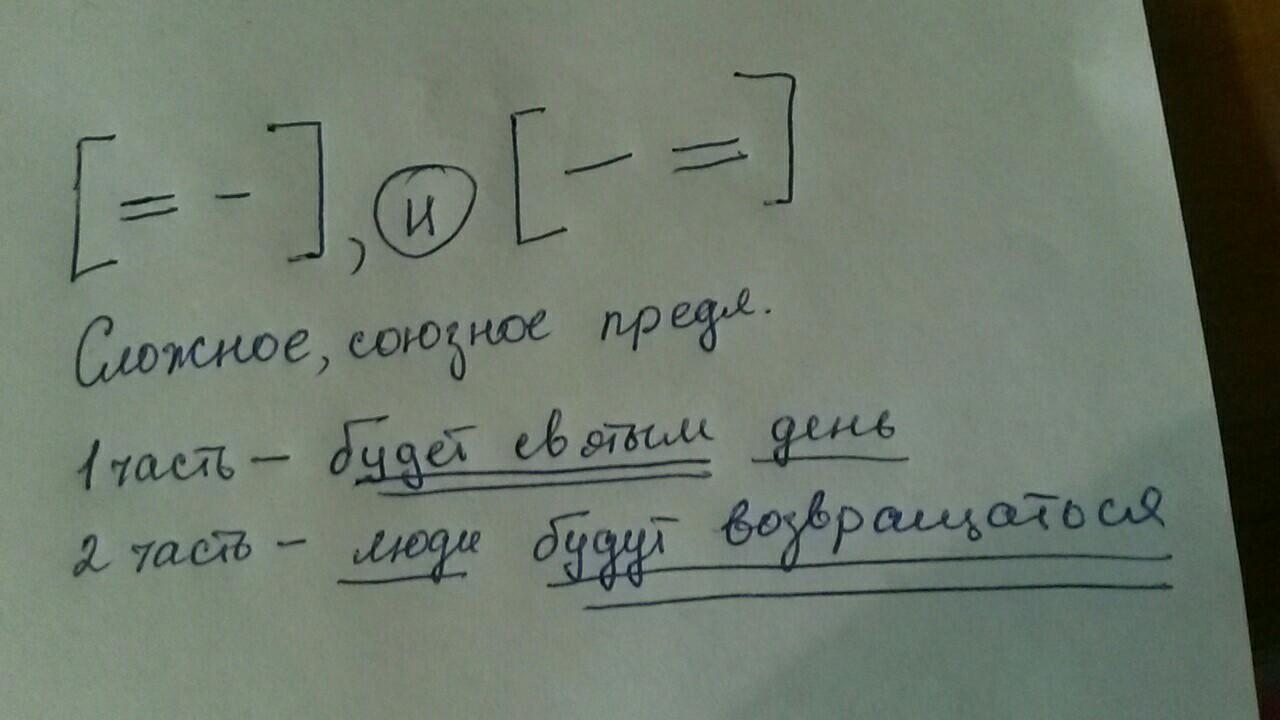 [= -], и [- =]
Сложное, союзное предл.
1 часть - будет святым день
2 часть - люди будут возвращаться